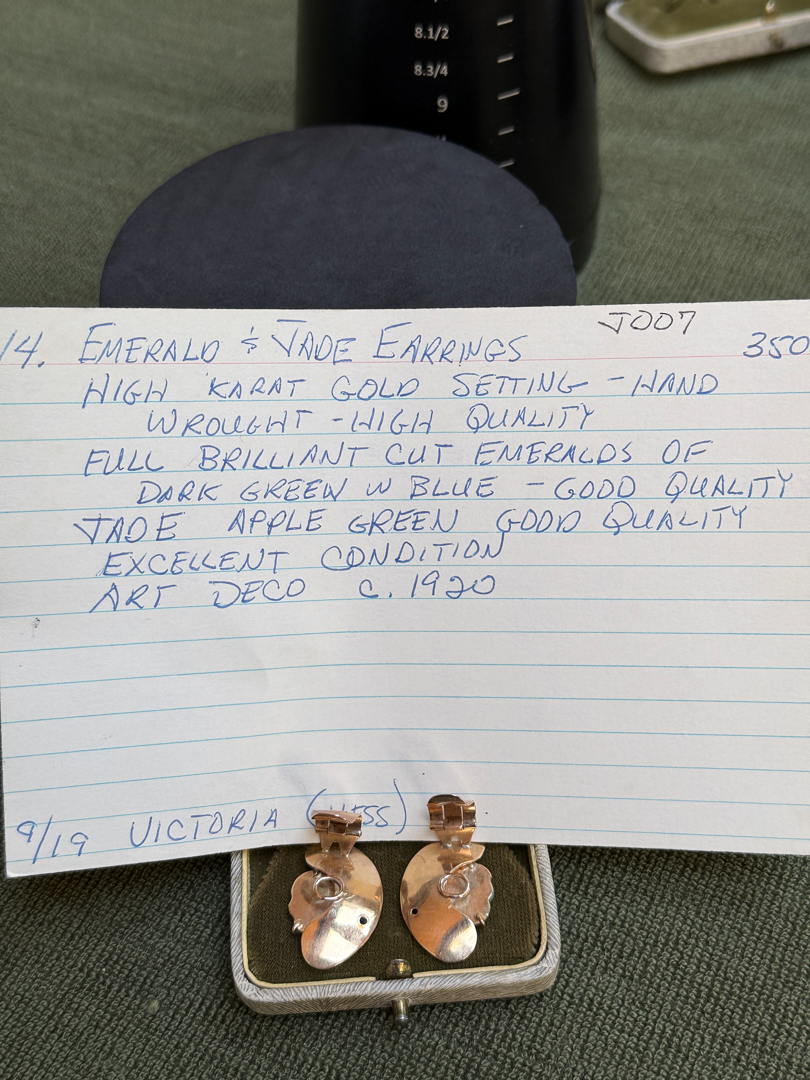 8.1/2
8.3/4
9
J007
14. EMERALD & JADE EARRINGS 350
HIGH KARAT GOLD SETTING - HAND
WROUGHT - HIGH QUALITY
FULL BRILLIANT CUT EMERALDS OF
DARK GREEN W BLUE - GOOD QUALITY
JADE APPLE GREEN GOOD QUALITY
EXCELLENT CONDITION
ART DECO C. 1920
9/19 VICTORIA